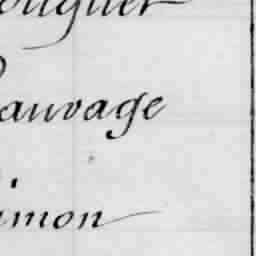 ouguer
auvage
imon